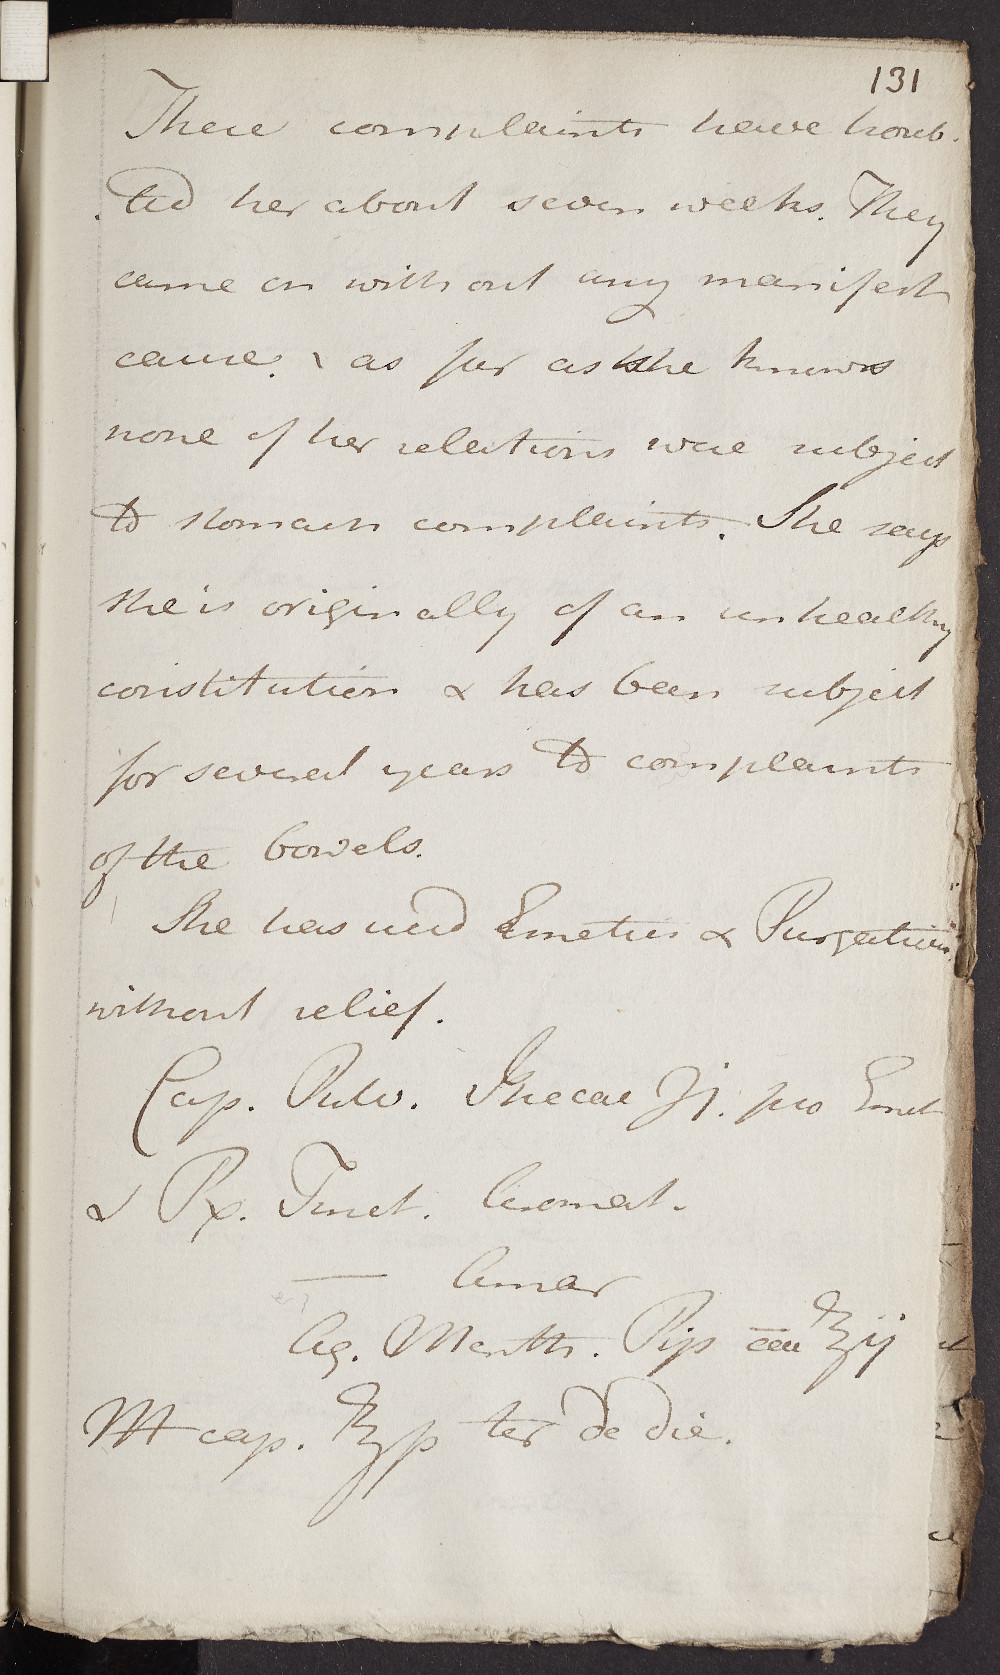 131
These complaints have troub-
-led her about seven weeks. They
came on without any manifest
cause. & as far as she knows
none of her relations were subject
to stomach complaints. She says
she is originally of an unhealthy
constitution & has been subject
for several years to complaints
of the bowels.
She has used Emetics & Purgatives
without relief.
Cap. Pulv. Ipecac ℈j. pro Emet
& Rx. Tinct. Aromat.
— Amar
Aq. Menth. Pip aa ℥ij
M cap. ℥ß ter de die.